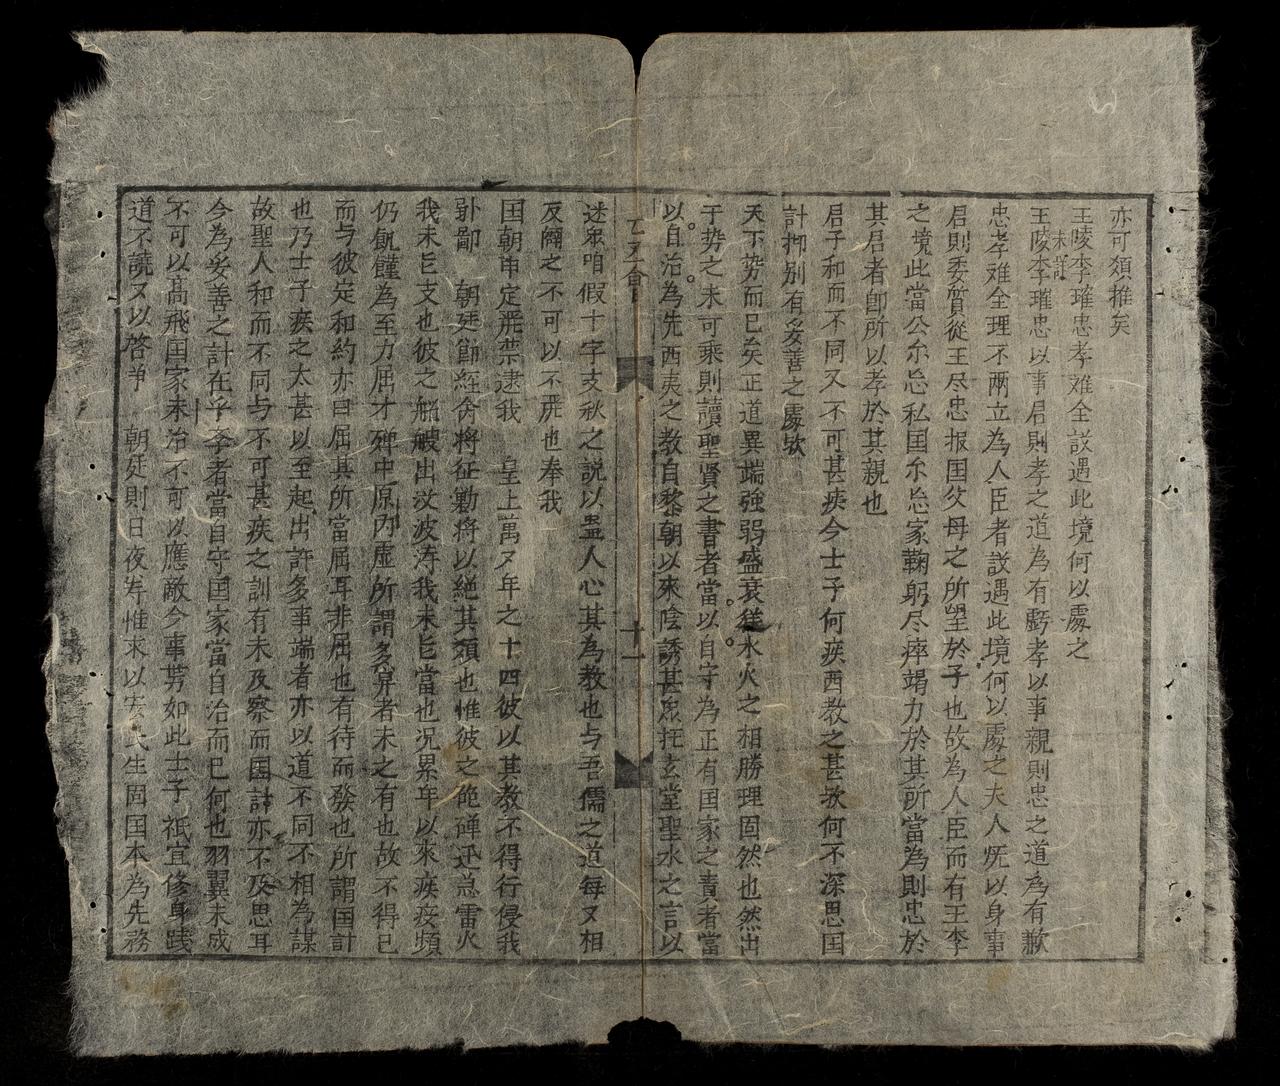 亦可類推矣
王陵李璀忠孝难全設遇此境何以處之
未詳
王陵李璀忠以事君則孝之道為有虧孝以事親則忠之道為有歉
忠孝难全理不兩立為人臣者設遇此境何以處之夫人既以身事
君則委質從王尽忠报国父母之所望於子也故為人臣而有王李
之境此當公尔忘私国尔忘家鞠躬尽瘁竭力於其所當為則忠於
其君者即所以孝於其親也
君子和而不同又不可甚疾今士子何疾西教之甚欤何不深思国
計抑别有妥善之處欤
天下势而已矣正道異端強弱盛衰徃水火之相勝理固然也然出
于势之未可乘則讀聖賢之書者當以自守為正有国家之責者當
以自治為先西夷之教自黎朝以來陰誘甚眾托玄堂聖水之言以
乙文會
十一
迷眾咱假十字支秋之説以蛊人心其為教也与吾儒之道每又相
反爾之不可以不疾也奉我
国朝申定禁逮我 皇上萬又年之十四彼以其教不得行侵我
卦鄙 朝廷節経命將征勦將以絕其類也惟彼之砲碑迅急雷火
我未与支也彼之船艘出没波涛我未与當也况累年以來疾疫頻
仍飢饉為至力屈才殚中原内虚所謂多算者未之有也故不得已
而与彼定和約亦曰屈其所當屈耳非屈也有待而發也所謂国計
也乃士子疾之太甚以至起出許多事端者亦以道不同不相為謀
故聖人和而不同与不可甚疾之訓有未及察而国計亦不及思耳
今為妥善之計在乎李者當自守国家當自治而已何也羽翼未成
不可以髙飛国家未治不可以應敵今事势如此士子祇宜修身践
道不譊又以啓争 朝廷則日夜寿惟求以安民生固国本為先務